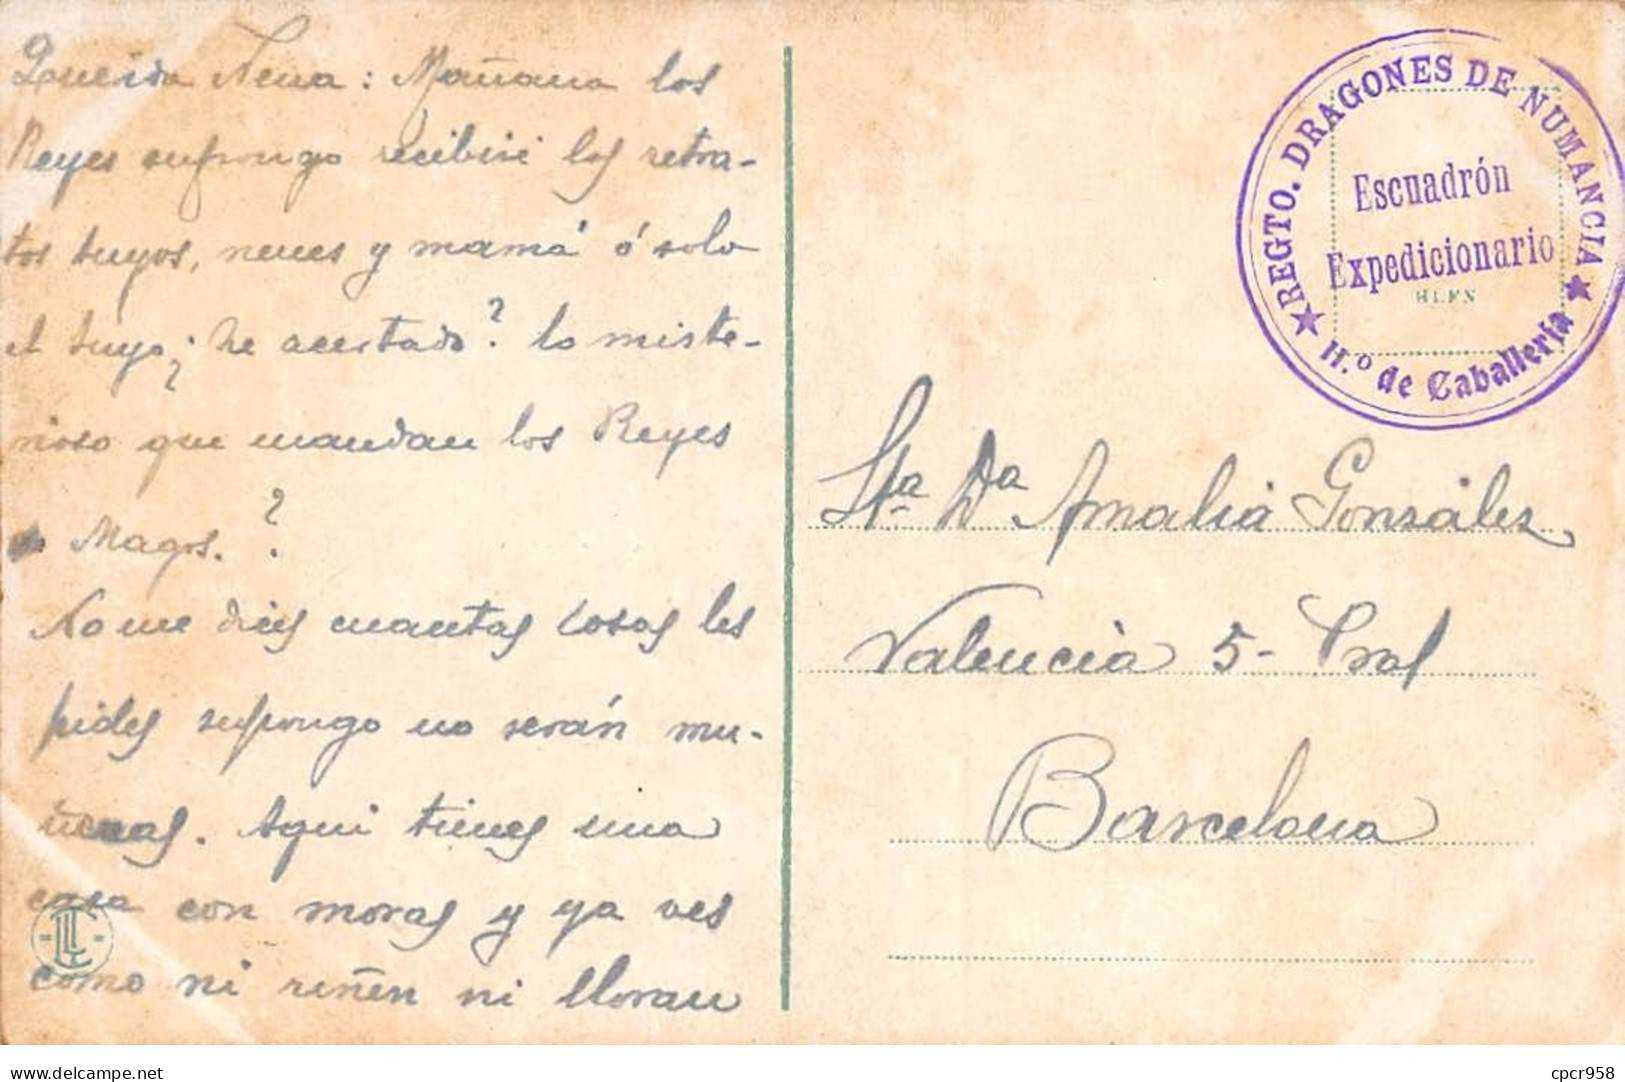 Querida Nena: Mañana los
Reyes supongo recibiré los retra-
tos tuyos, nenes y mamá ó solo
el tuyo ¿he acertado? lo miste-
rioso que mandan los Reyes
Magos.?
No me dices cuantas cosas les
pides supongo no serán mu-
ñecas. Aqui tienes una
casa con moras y ya ves
como ni riñen ni lloran
REGTO. DRAGONES DE NUMANCIA
Escuadrón
Expedicionario
H.º de Caballería
Sta. Dª Amalia González
Valencia 5 - Pral
Barcelona
LL
Delcampe.net
cpcr958